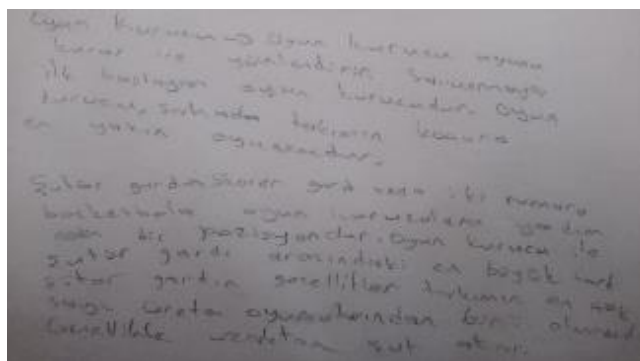 Oyun kurucu → Oyun kurucu oyunu
kurar ve yönlendirir. Savunmaya
ilk başlayan oyun kurucudur. Oyun
kurucu, sahada takımın
en yakın oyuncudur.
Şutör gard skorer gard veya iki numara
basketbolda oyun kuruculara yardım
eden bir pozisyondur. Oyun kurucu ile
şutör gardı arasındaki en büyük fark
şutör gardın genellikle takımın en çok
sayı üreten oyuncularından biri olmasıdır
Genellikle uzaktan şut atar.